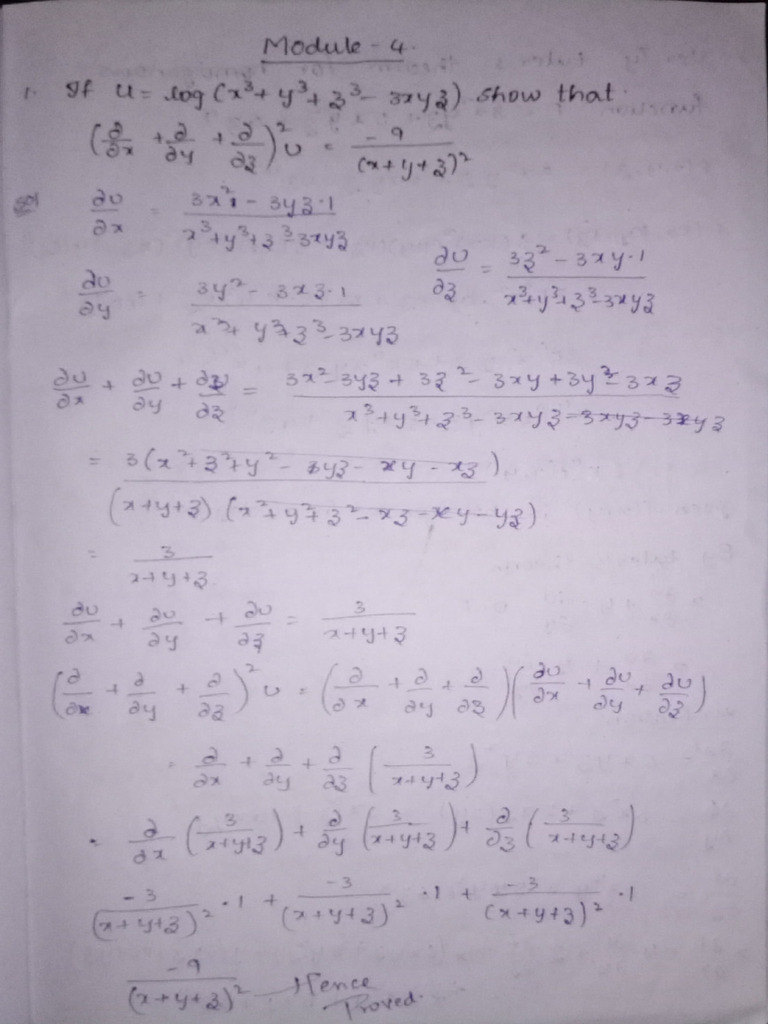 Module - 4.
1. If u = log (x³ + y³ + z³ - 3xyz) show that
(∂/∂x + ∂/∂y + ∂/∂z)² u = -9/(x+y+z)²
Sol ∂u/∂x = (3x² - 3yz·1)/(x³+y³+z³-3xyz)
∂u/∂y = (3y² - 3xz·1)/(x³+y³+z³-3xyz) ∂u/∂z = (3z² - 3xy·1)/(x³+y³+z³-3xyz)
∂u/∂x + ∂u/∂y + ∂u/∂z = (3x² - 3yz + 3z² - 3xy + 3y² - 3xz)/(x³+y³+z³-3xyz)
= 3(x²+z²+y² - yz - xy - xz)/((x+y+z) (x²+y²+z²-xz-xy-yz))
= 3/(x+y+z)
∂u/∂x + ∂u/∂y + ∂u/∂z = 3/(x+y+z)
(∂/∂x + ∂/∂y + ∂/∂z)² u = (∂/∂x + ∂/∂y + ∂/∂z) (∂u/∂x + ∂u/∂y + ∂u/∂z)
= ∂/∂x + ∂/∂y + ∂/∂z (3/(x+y+z))
= ∂/∂x (3/(x+y+z)) + ∂/∂y (3/(x+y+z)) + ∂/∂z (3/(x+y+z))
-3/(x+y+z)² ·1 + -3/(x+y+z)² ·1 + -3/(x+y+z)² ·1
-9/(x+y+z)² Hence
Proved.